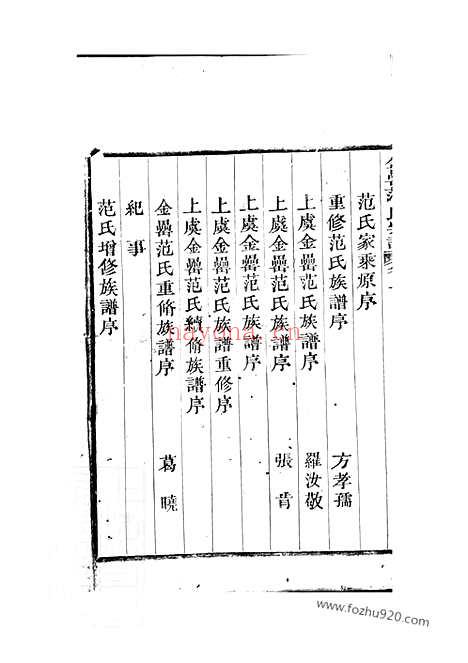 范氏家乘原序
重修范氏族譜序 方孝孺
上虞金罍范氏族譜序 羅汝敬
上虞金罍范氏族譜序 張肯
上虞金罍范氏族譜序
上虞金罍范氏族譜重修序
上虞金罍范氏續脩族譜序
金罍范氏重脩族譜序 葛曉
紀事
范氏增修族譜序
nayona.cn
www.fozhu920.com